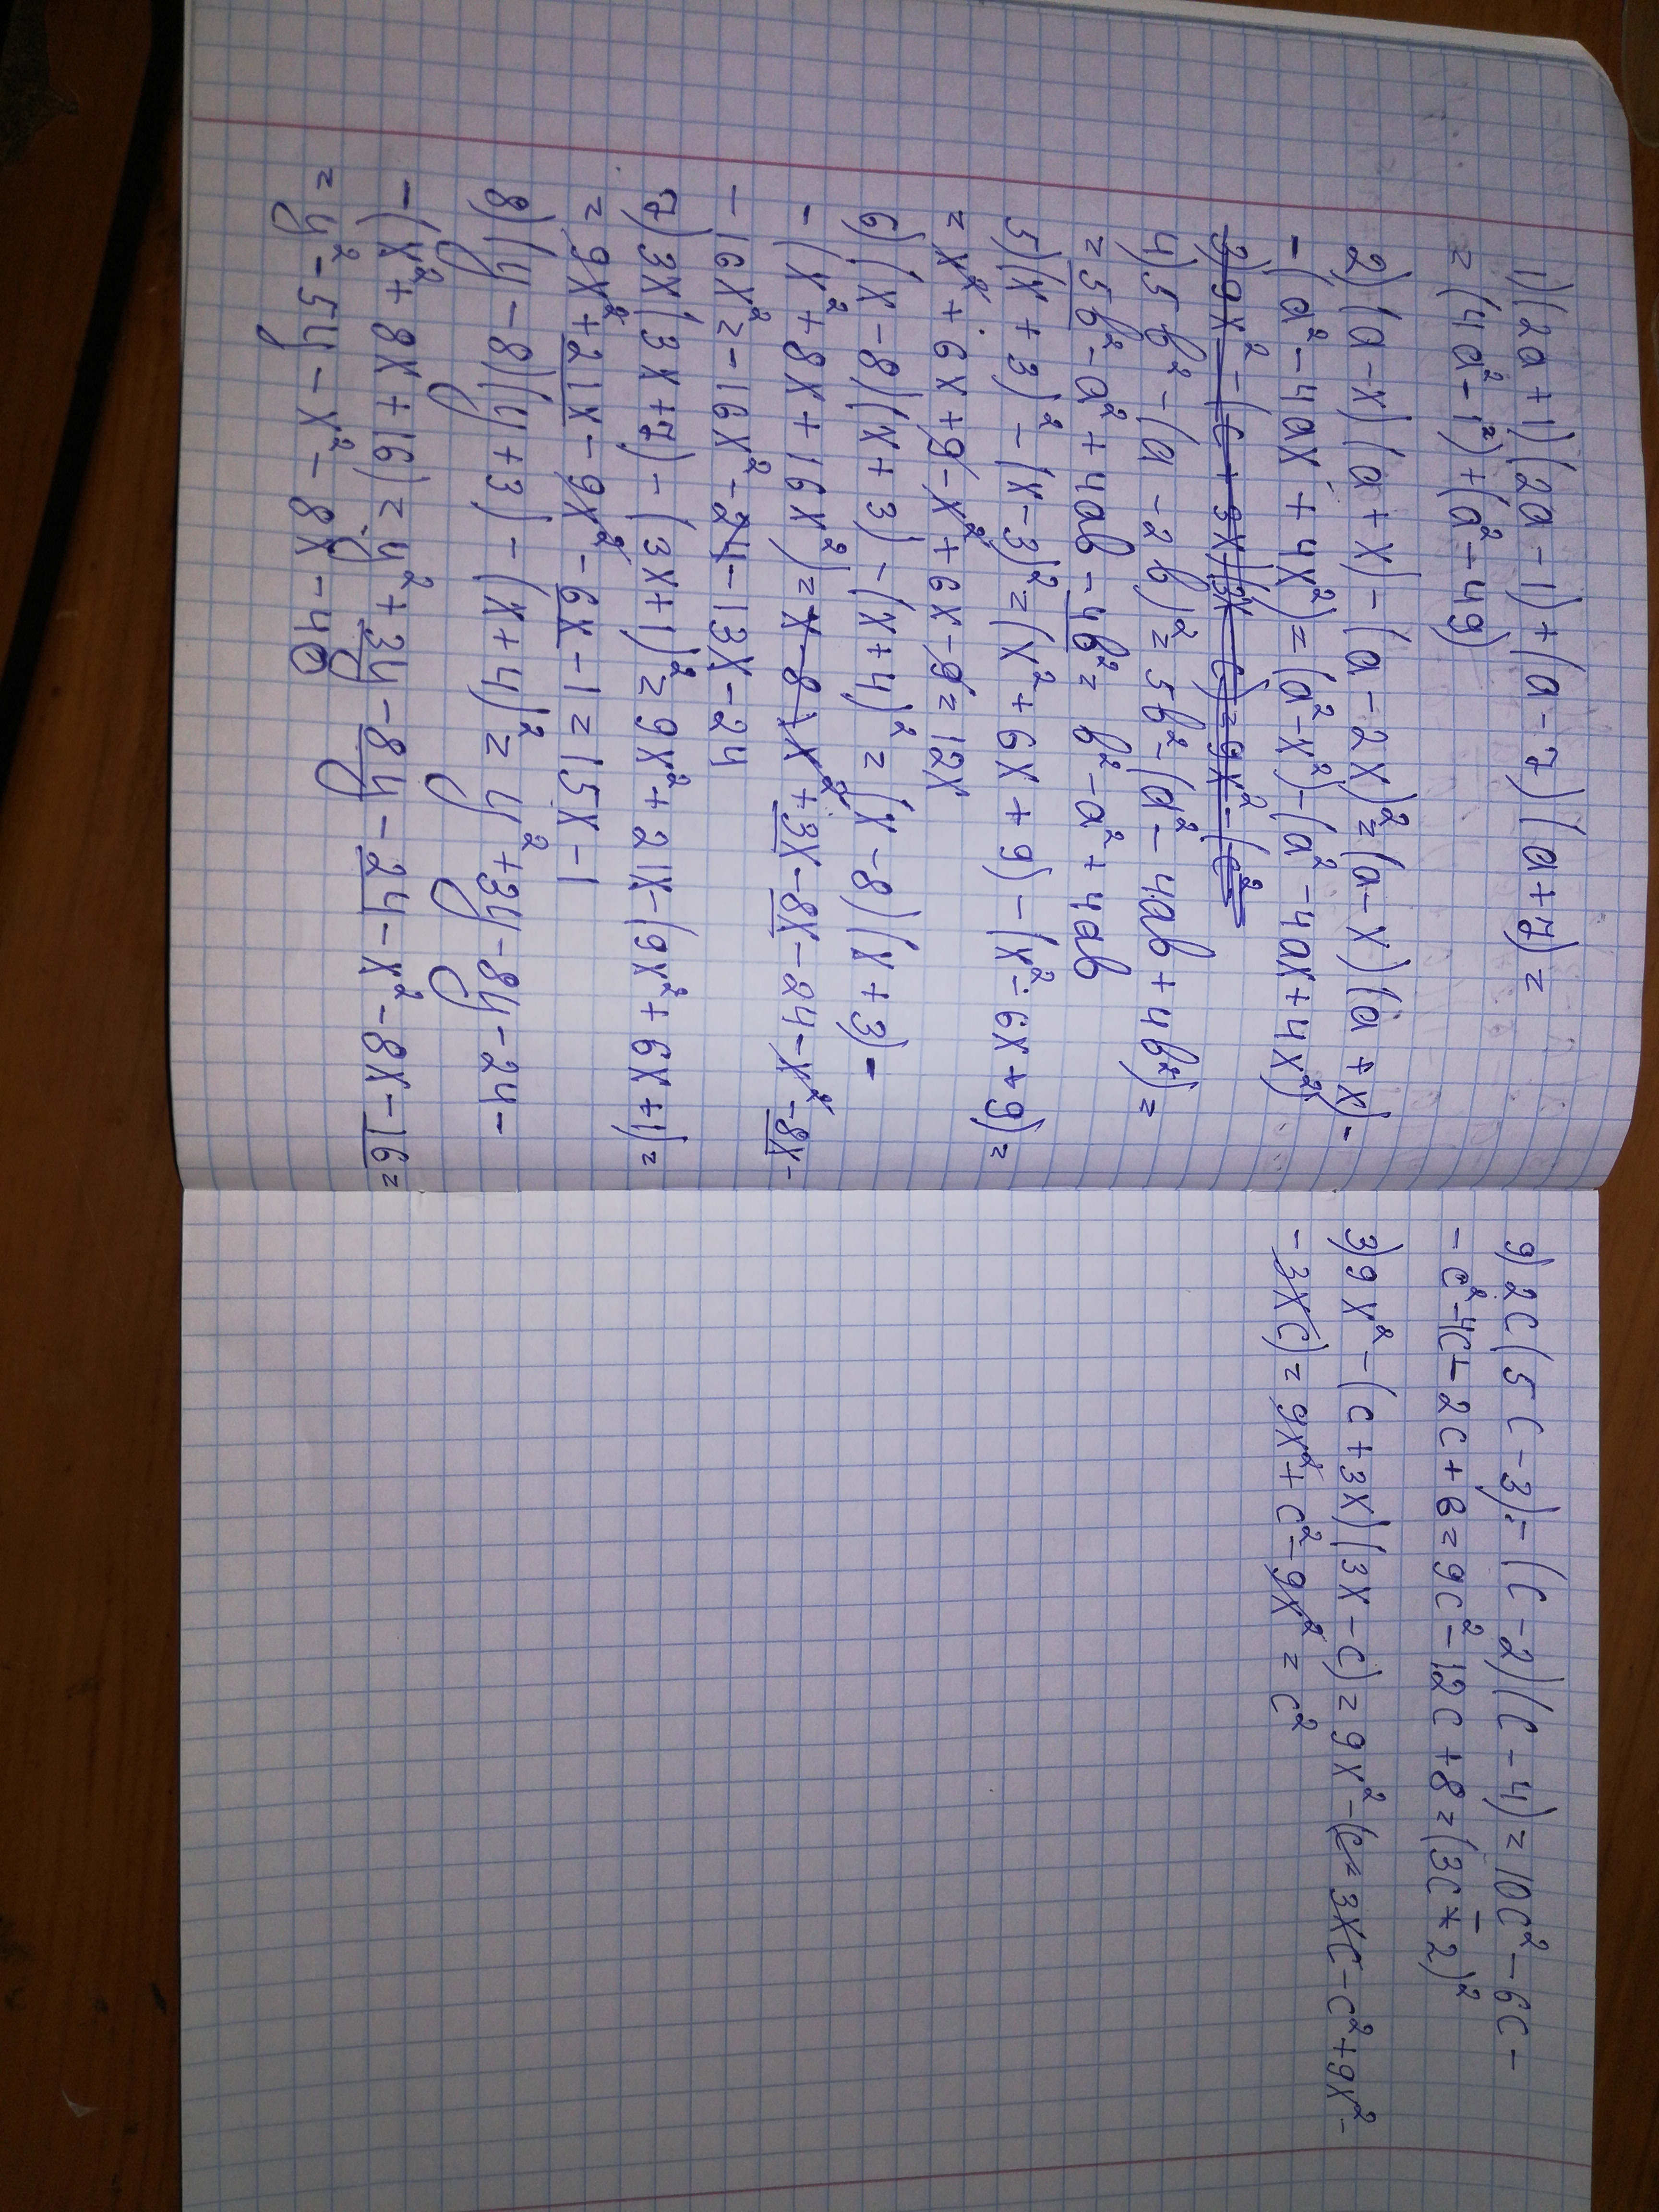 1) (2a+1)(2a-1)+(a-7)(a+7)=
=(4a²-1²)+(a²-49)
2) (a-x)(a+x)-(a-2x)²=(a-x)(a+x)-
-(a²-4ax+4x²)=(a²-x²)-(a²-4ax+4x²)
3) 9x²-(c+3x)(3x-c)=9x²-(c²
4) 5b²-(a-2b)²=5b²-(a²-4ab+4b²)=
=5b²-a²+4ab-4b²=b²-a²+4ab
5) (x+3)²-(x-3)²=(x²+6x+9)-(x²-6x+9)=
=x²+6x+9-x²+6x-9=12x
6) (x-8)(x+3)-(x+4)²=(x-8)(x+3)-
-(x²+8x+16x²)=x-8 x²+3x-8x-24-x²-8x-
-16x²=-16x²-24-13x-24
7) 3x(3x+7)-(3x+1)²=9x²+21x-(9x²+6x+1)=
=9x²+21x-9x²-6x-1=15x-1
8) (y-8)(y+3)-(x+4)²=y²+3y-8y-24-
-(x²+8x+16)=y²+3y-8y-24-x²-8x-16=
=y²-5y-x²-8x-40
9) 2c(5c-3)-(c-2)(c-4)=10c²-6c-
-c²-4c-2c+8=9c²-12c+8=(3c-2)²
3) 9x²-(c+3x)(3x-c)=9x²-(c=3xc-c²+9x²-
-3xc)=9x²+c²-9x²=c²